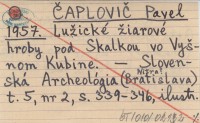 ČAPLOVIČ Pavel
1957. Lužické žiarové
hroby pod Skalkou vo Vyš-
nom Kubíne. — Sloven-
NITRA!
ská Archeológia (Bratislava)
t. 5, nr 2, s. 339-346, ilustr.